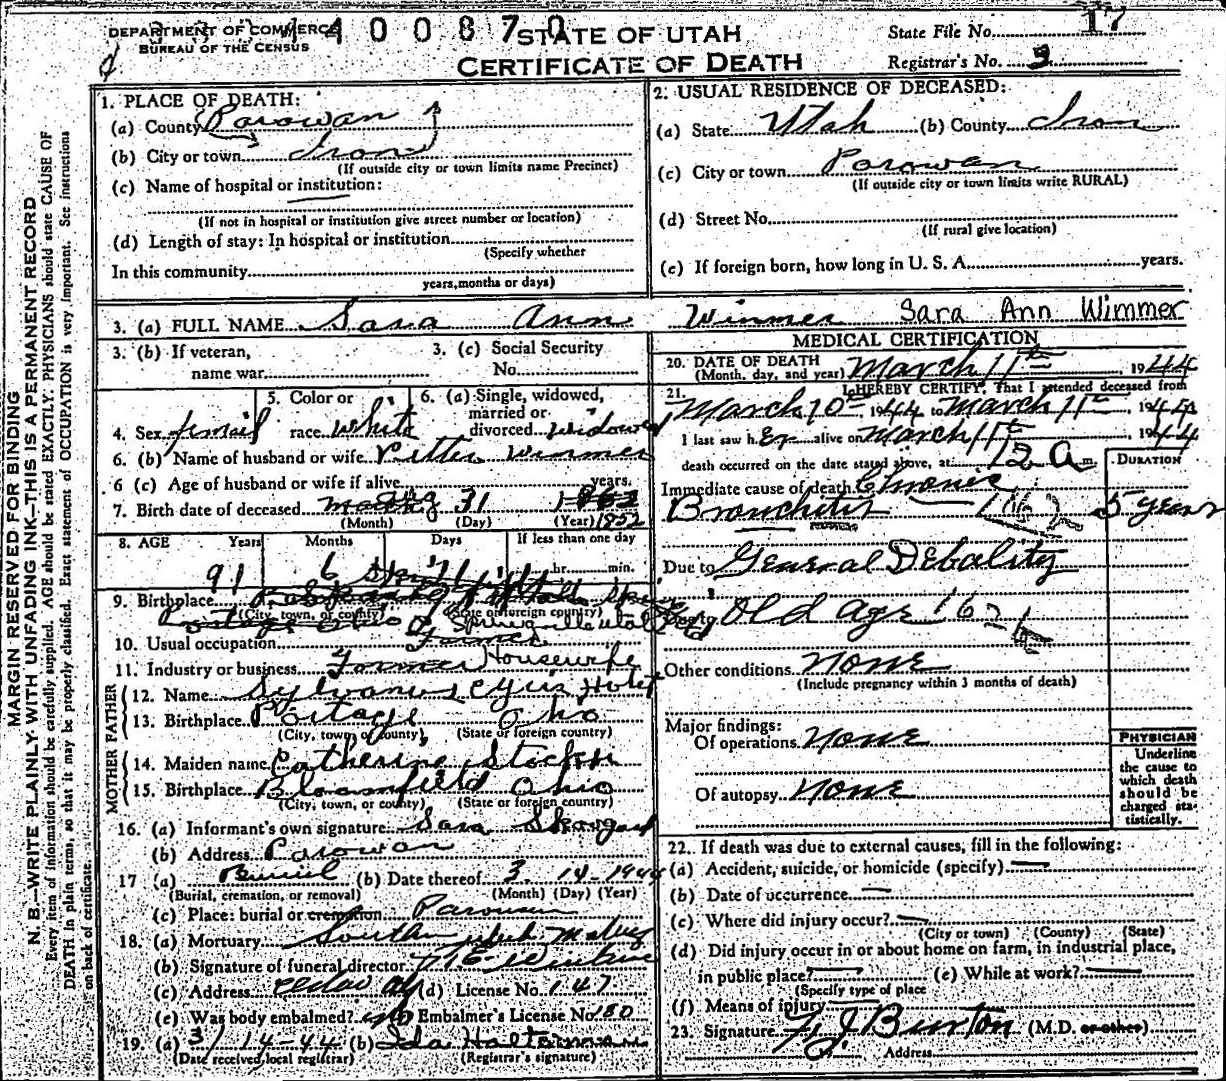 DEPARTMENT OF COMMERCE
BUREAU OF THE CENSUS
400870
STATE OF UTAH
CERTIFICATE OF DEATH
State File No. 17
Registrar's No. 3
MARGIN RESERVED FOR BINDING
N. B.—WRITE PLAINLY WITH UNFADING INK—THIS IS A PERMANENT RECORD
Every item of information should be carefully supplied. AGE should be stated EXACTLY. PHYSICIANS should state CAUSE OF
DEATH in plain terms, so that it may be properly classified. Exact statement of OCCUPATION is very important. See instructions
on back of certificate.
1. PLACE OF DEATH:
(a) County Parowan
(b) City or town Iron
(If outside city or town limits name Precinct)
(c) Name of hospital or institution:
(If not in hospital or institution give street number or location)
(d) Length of stay: In hospital or institution
(Specify whether
In this community
years, months or days)
2. USUAL RESIDENCE OF DECEASED:
(a) State Utah (b) County Iron
(c) City or town Parowan
(If outside city or town limits write RURAL)
(d) Street No.
(If rural give location)
(e) If foreign born, how long in U. S. A. years.
3. (a) FULL NAME Sara Ann Winmer Sara Ann Wimmer
3. (b) If veteran,
name war
3. (c) Social Security
No.
5. Color or
4. Sex femail race White
6. (a) Single, widowed,
married or
divorced Widowed
6. (b) Name of husband or wife Winmer
6 (c) Age of husband or wife if alive years.
7. Birth date of deceased Aug 31 1852
(Month) (Day) (Year)
8. AGE Years Months Days If less than one day
91 6 11 hr. min.
9. Birthplace
(City, town, or county) (State or foreign country)
Springville Utah
10. Usual occupation
11. Industry or business Housewife
FATHER
12. Name Sylvanus Cyrus Hulet
13. Birthplace Portage Ohio
(City, town, or county) (State or foreign country)
MOTHER
14. Maiden name Catherine
15. Birthplace Bloomfield Ohio
(City, town, or county) (State or foreign country)
16. (a) Informant's own signature Sara
(b) Address Parowan
17 (a) Buriel (b) Date thereof 3 14-1944
(Burial, cremation, or removal) (Month) (Day) (Year)
(c) Place: burial or cremation Parowan
18. (a) Mortuary Southern Utah
(b) Signature of funeral director
(c) Address Cedar (d) License No. 147
(e) Was body embalmed? Embalmer's License No. 180
19. (a) 3/14-44 (b) Ida Halterman
(Date received local registrar) (Registrar's signature)
MEDICAL CERTIFICATION
20. DATE OF DEATH
(Month, day, and year) March 11th 1944
21. I HEREBY CERTIFY, That I attended deceased from
March 10th 1944 to March 11th, 1944
I last saw her alive on March 11th 1944
death occurred on the date stated above, at 12 a m.
DURATION
Immediate cause of death Chronic
Bronchitis 5 years
Due to General Debality
Due to Old age 162
Other conditions None
(Include pregnancy within 3 months of death)
Major findings:
Of operations None
Of autopsy None
PHYSICIAN
Underline
the cause to
which death
should be
charged sta-
tistically.
22. If death was due to external causes, fill in the following:
(a) Accident, suicide, or homicide (specify)
(b) Date of occurrence
(c) Where did injury occur?
(City or town) (County) (State)
(d) Did injury occur in or about home on farm, in industrial place,
in public place? (e) While at work?
(Specify type of place
(f) Means of injury
23. Signature F. J. Burton (M.D. or other)
Address